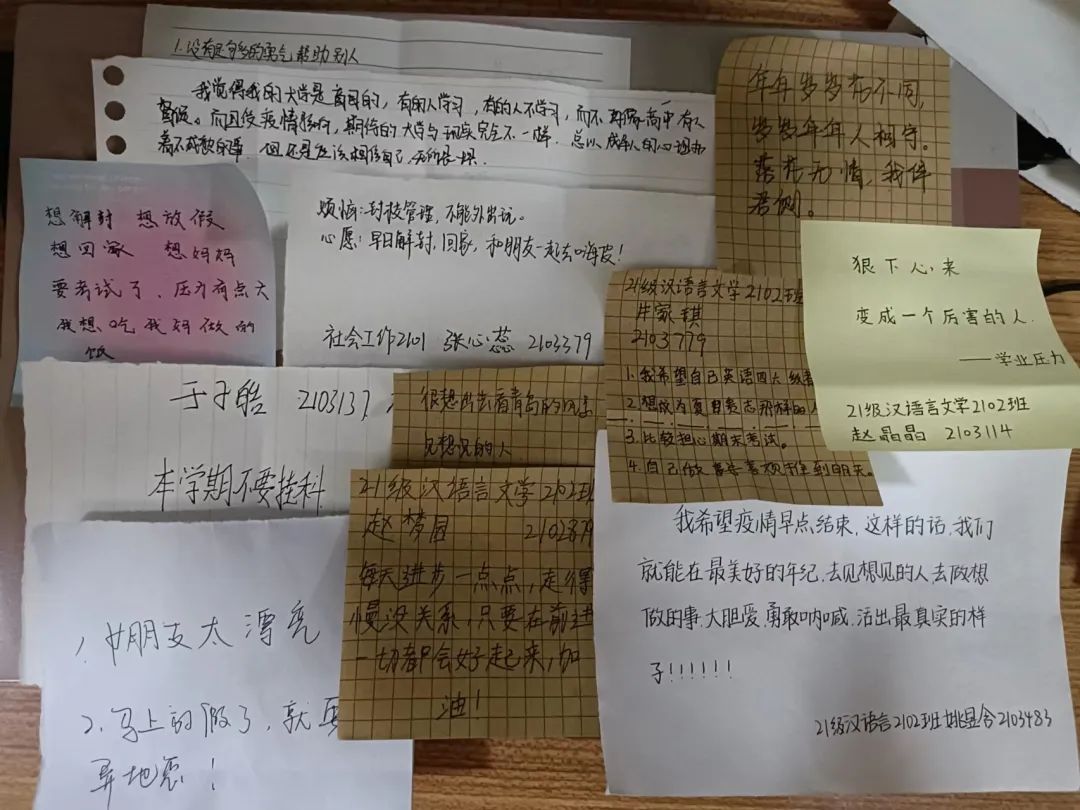 1.没有足够多的勇气帮助别人
我觉得我的大学是离母的，有的人学习，有的人不学习，而不再像高中有人
督促。而且受疫情影响，期待的大学与现实完全不一样，总以成年人的心理却
着不成熟的事，但还是应该相信自己，无所畏惧.
年年岁岁花不同，
岁岁年年人相守。
落花无情，我伴
君侧。
想解封 想放假
想回家 想妈妈
要考试了、压力有点大
我想吃我妈做的
饭
烦恼：封校管理，不能外出玩。
心愿：早日解封，回家，和朋友一起去嗨皮！
社会工作2101 张心蕊 2103379
狠下心来
变成一个厉害的人.
——学业压力
21级汉语言文学2102班
赵晶晶 2103114
21级汉语言文学2102班
牛家琪
2103779
1.我希望自己英语四六级
2.想成为夏目贵志那样的人
3.比较担心期末考试。
4.自己做
于子皓 2103137
本学期不要挂科
很想出去看青岛的风景
见想见的人
21级汉语言文学2102班
赵梦园 2102879
每天进步一点点，走得
慢没关系，只要在前进
一切都会好起来，加
油！
我希望疫情早点结束，这样的话，我们
就能在最美好的年纪，去见想见的人去做想
做的事，大胆爱，勇敢呐喊，活出最真实的样
子！！！！！！
21级汉语言2102班姚显令2103483
1.女朋友太漂亮
2.马上的假了，就要
异地恋！